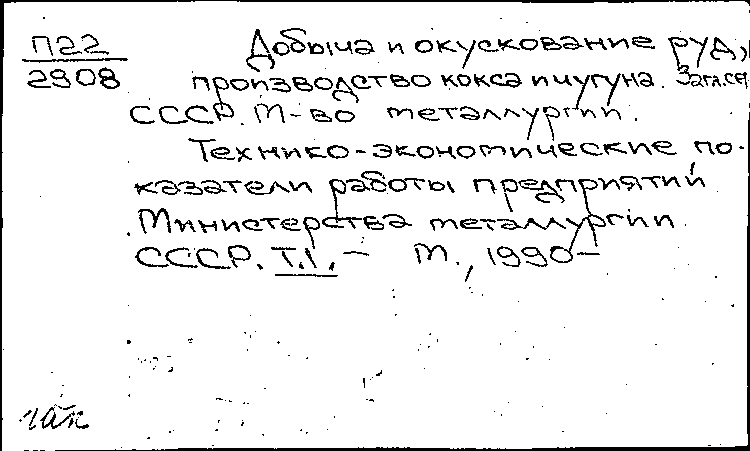 П22
2908
Добыча и окускование руд,
производство кокса и чугуна. Загл. сер.
СССР. М-во металлургии.
Технико-экономические по-
казатели работы предприятий
Министерства металлургии
СССР. Т.1. – М., 1990–